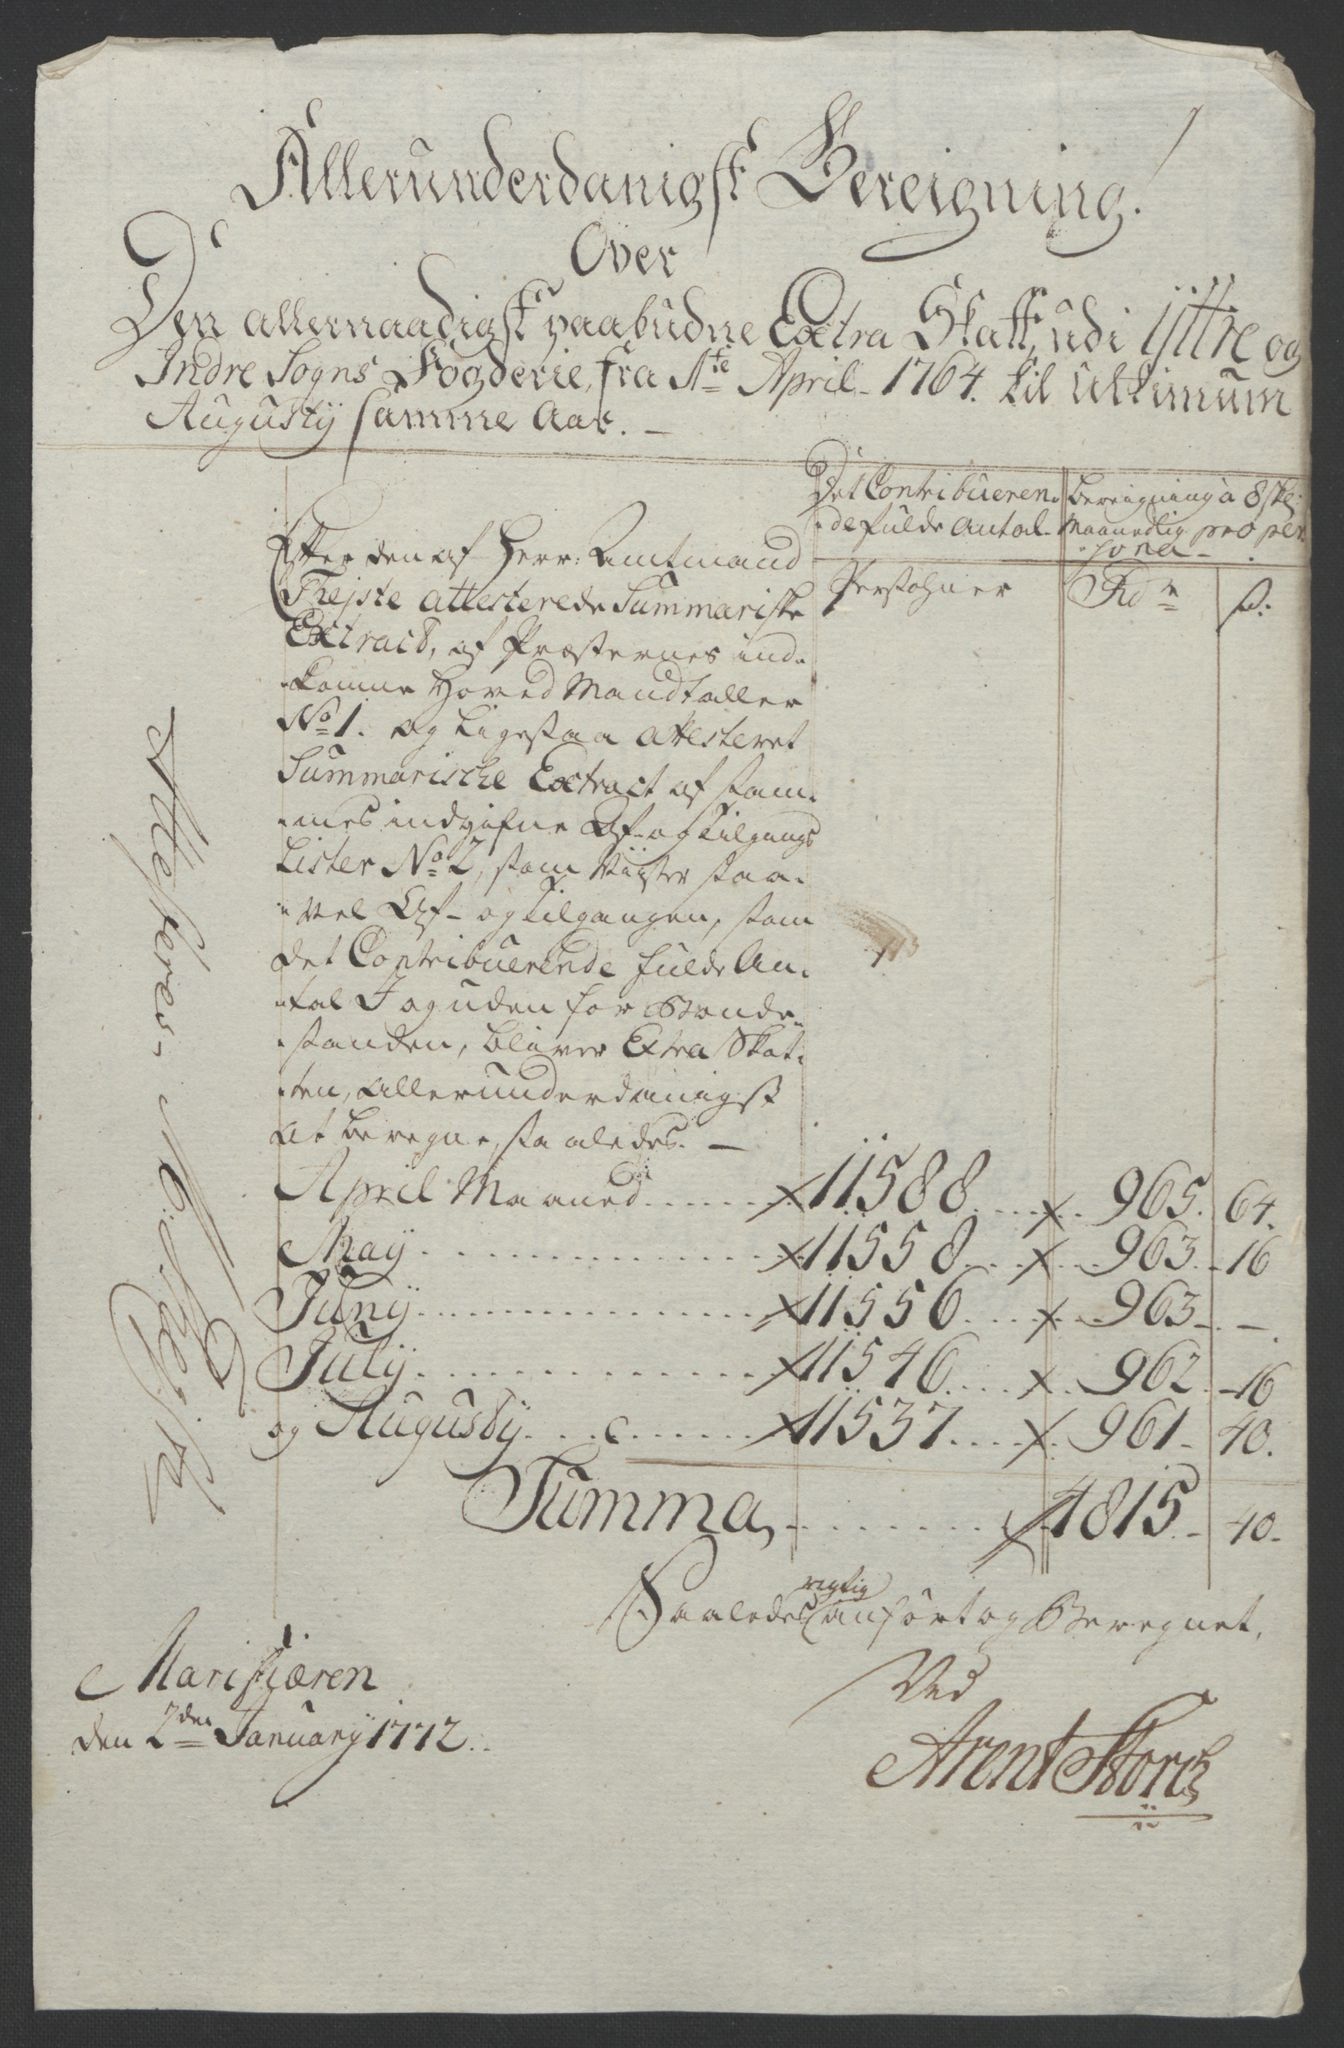 Allerunderdanigst Bereigning.
Over
Den allernaadigst paabudne Extra Skatt, udi Ÿttre og
Indre Sogns Fogderie, fra 1te April 1764. til Ultimum
Augustÿ samme Aar.
Det Contribueren-
de fulde Antal
Bereigning a 8 sk:
Maanedlig pro per-
sona
Persohner
Rdr
s:
Efter den af Herr: Amtmand
attesterede Summariske
Extract, af Præsternes ind-
komne Hoved Mandtaller
No 1. og ligesaa attesteret
Summarische Extract af sam-
mes indgifne Af- og Tilgangs
Lister No 2, som viiser saa-
vel Af- og Tilgangen, som
det Contribuerende fulde An-
tal I og uden for Bonde-
standen, bliver Extra Skat-
ten, allerunderdanigst
at beregne, saaledes. —
April Maaned 11588 965. 64.
Maÿ 11558 963. 16
Junÿ 11556 963 -
Julÿ 11546 962. 16
og Augustÿ 11537 961. 40.
Summa 4815. 40.
Saaledes rigtig anført og Beregnet,
Ved
Arent Storch
Marifiæren
den 2den Januarÿ 1772.
Attesteres